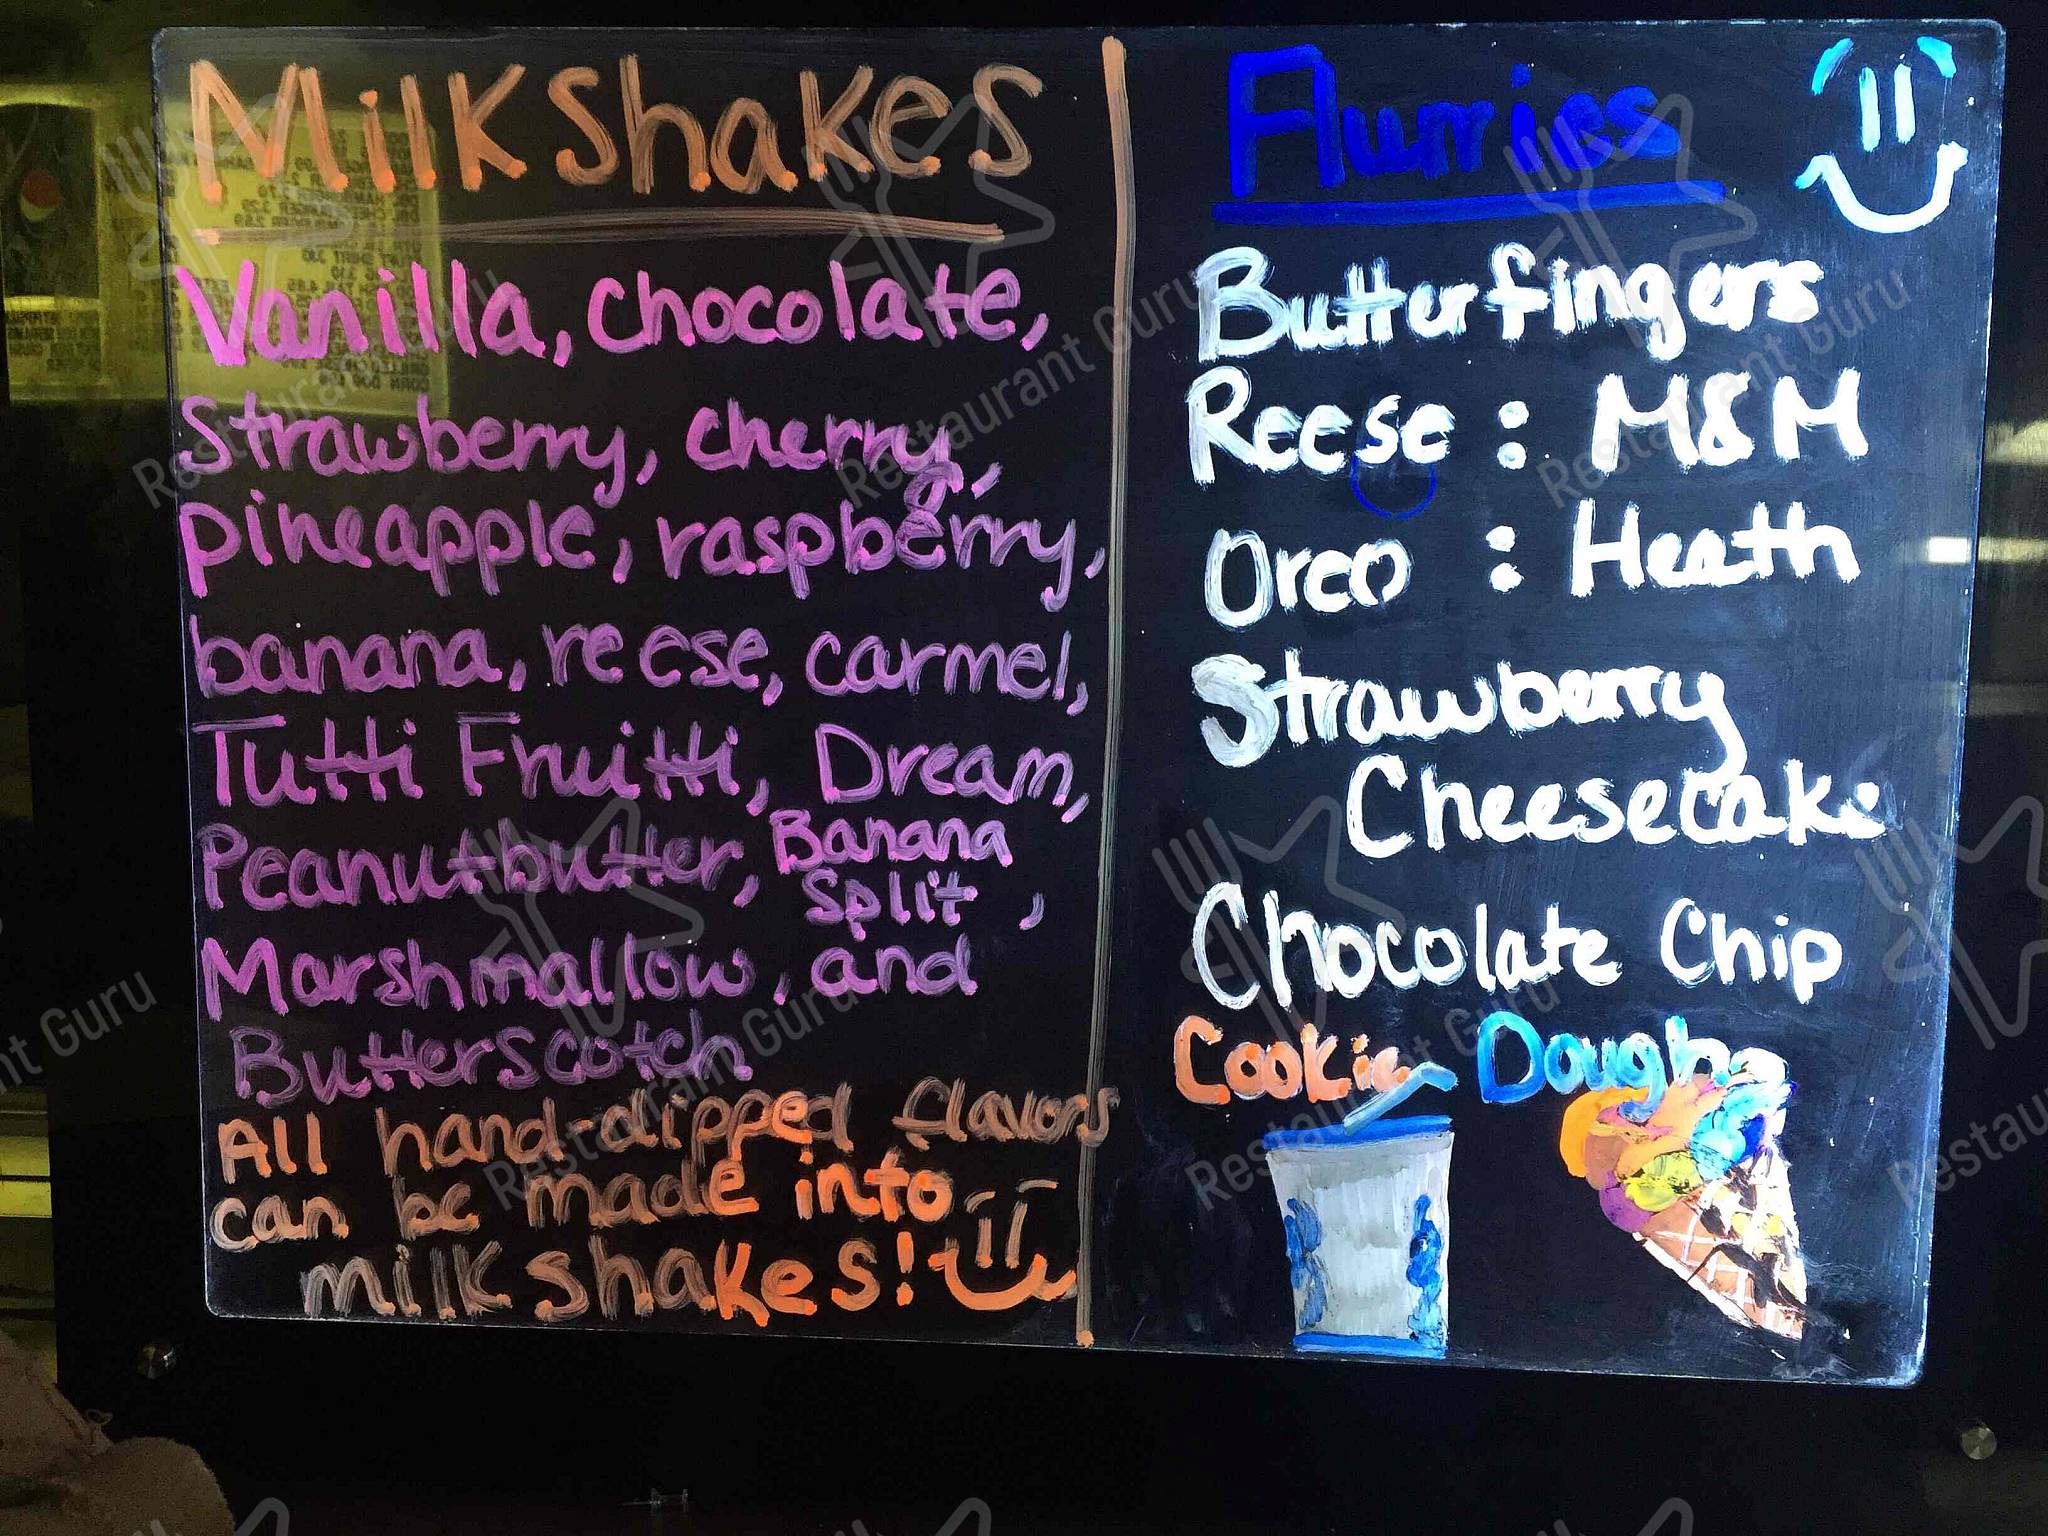 Milkshakes
Vanilla, chocolate,
Strawberry, cherry,
pineapple, raspberry,
banana, reese, carmel,
Tutti Fruitti, Dream,
Peanutbutter, Banana Split,
Marshmallow, and
Butterscotch
All hand-dipped flavors
can be made into
milkshakes!
Flurries
Butterfingers
Reese : M&M
Oreo : Heath
Strawberry
Cheesecake
Chocolate Chip
Cookie Dough
Restaurant Guru